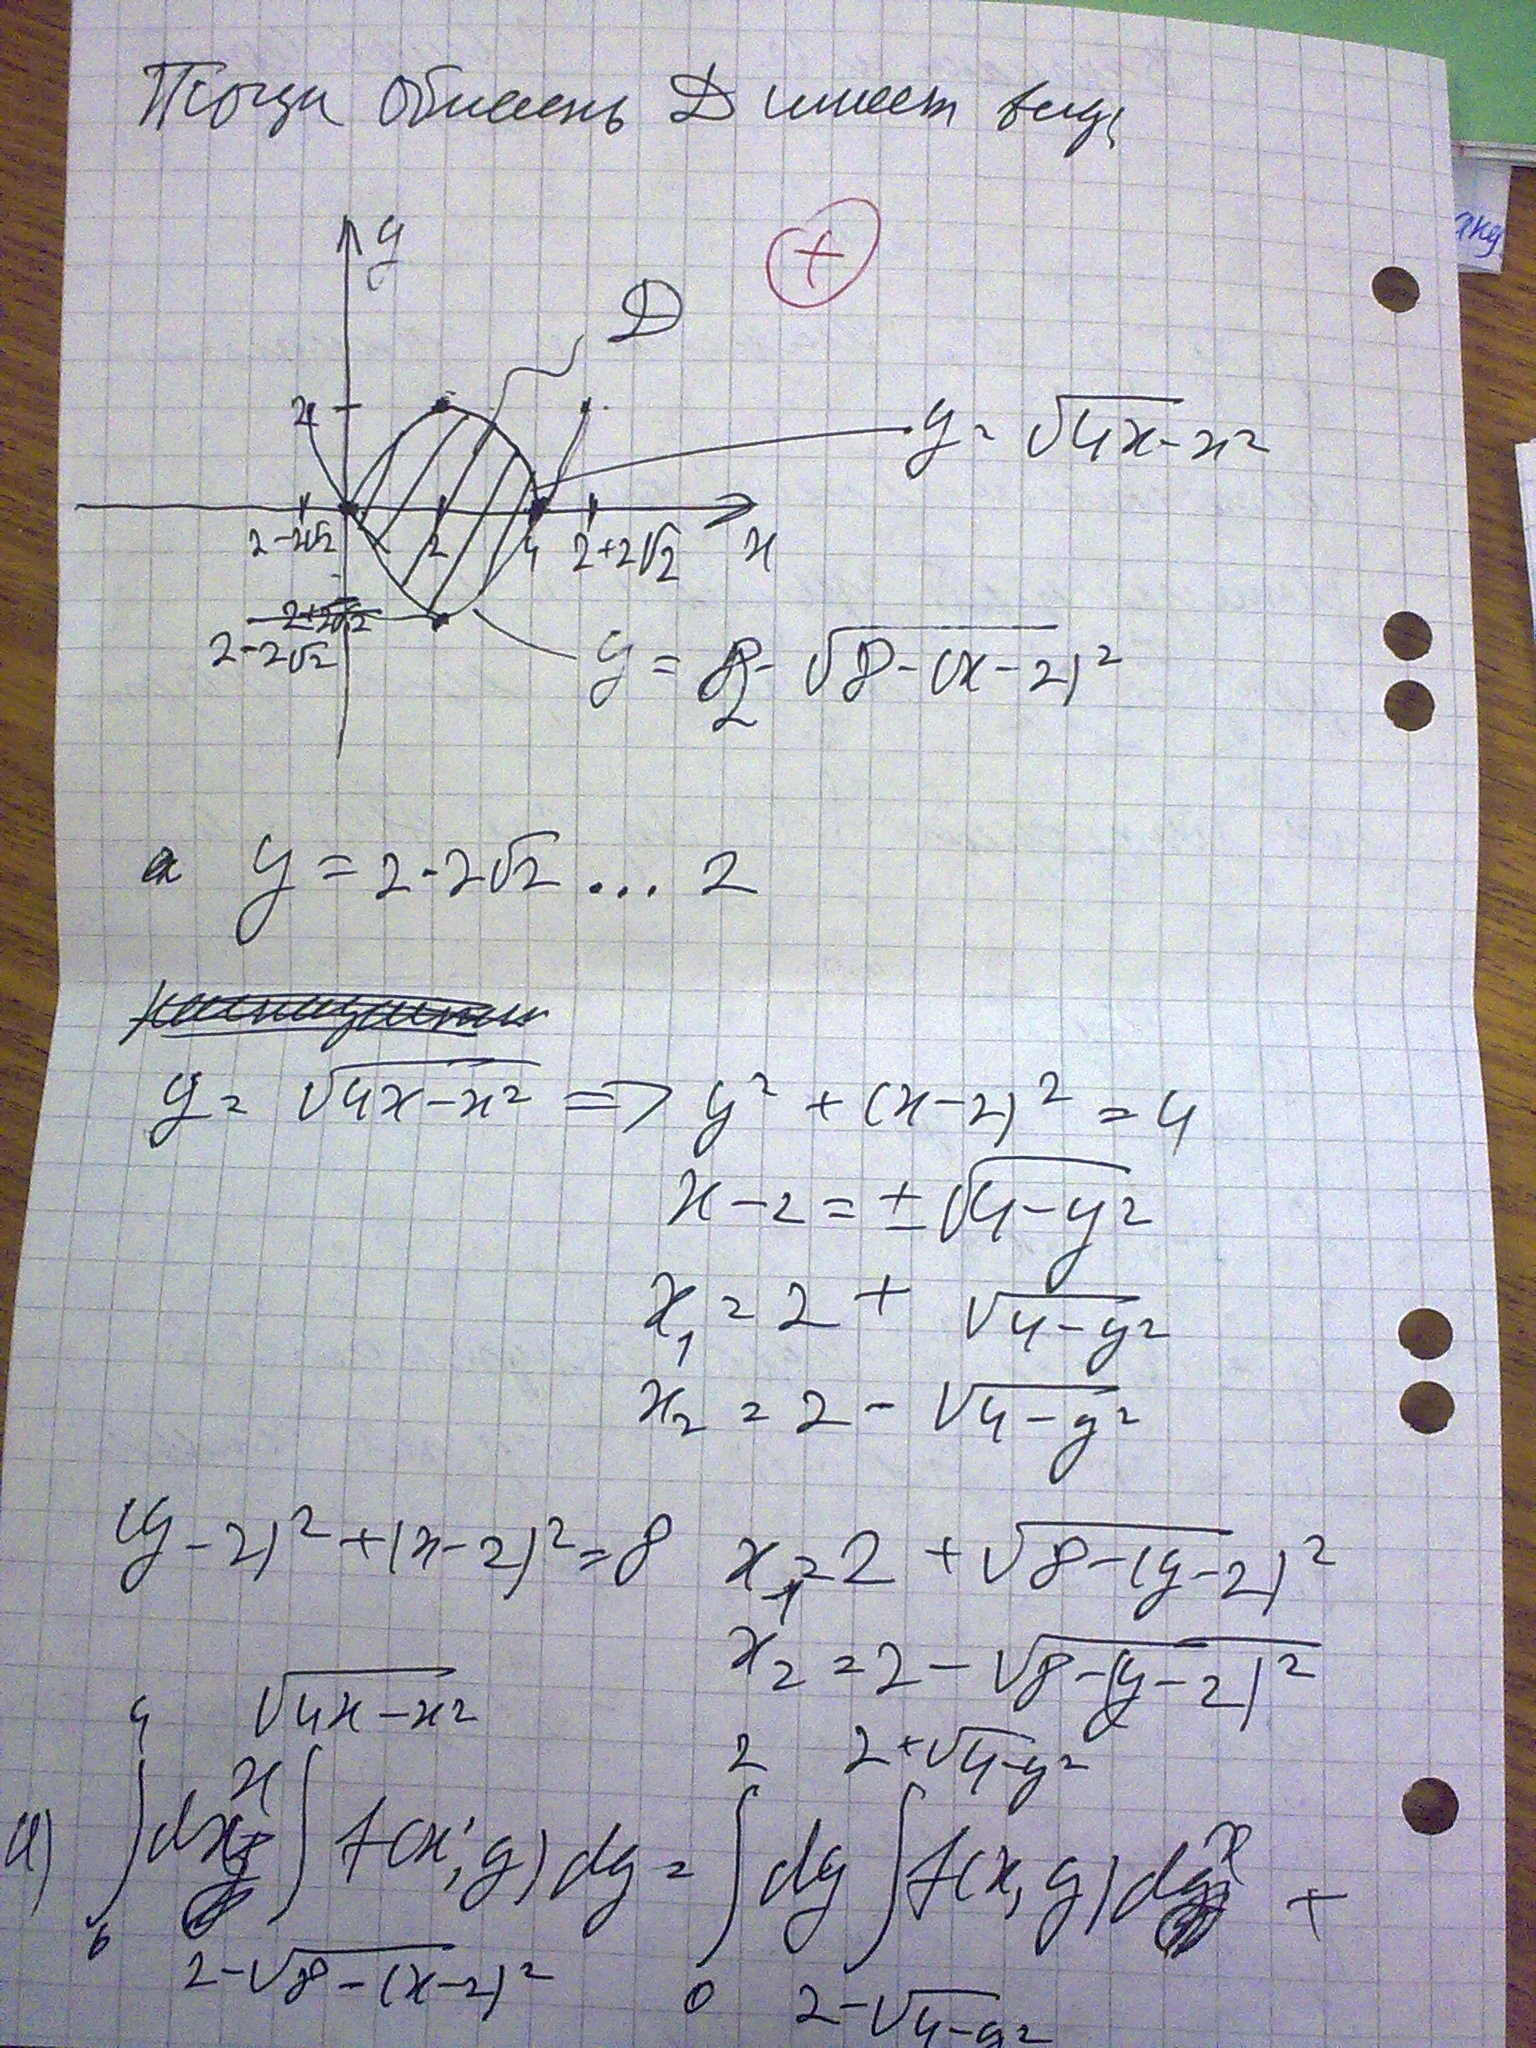 Тогда область D имеет вид
y
+
D
2
y = √4x-x²
2-2√2
2
4
2+2√2
x
2-2√2
y = 2 - √8-(x-2)²
а y = 2-2√2 ... 2
y = √4x-x² => y² + (x-2)² = 4
x-2 = ± √4-y²
x₁ = 2 + √4-y²
x₂ = 2 - √4-y²
(y-2)² + (x-2)² = 8 x₁ = 2 + √8-(y-2)²
x₂ = 2 - √8-(y-2)²
4 √4x-x² 2 2+√4-y²
а) ∫dx ∫ f(x,y) dy = ∫ dy ∫ f(x,y) dx +
0 2-√8-(x-2)² 0 2-√4-y²